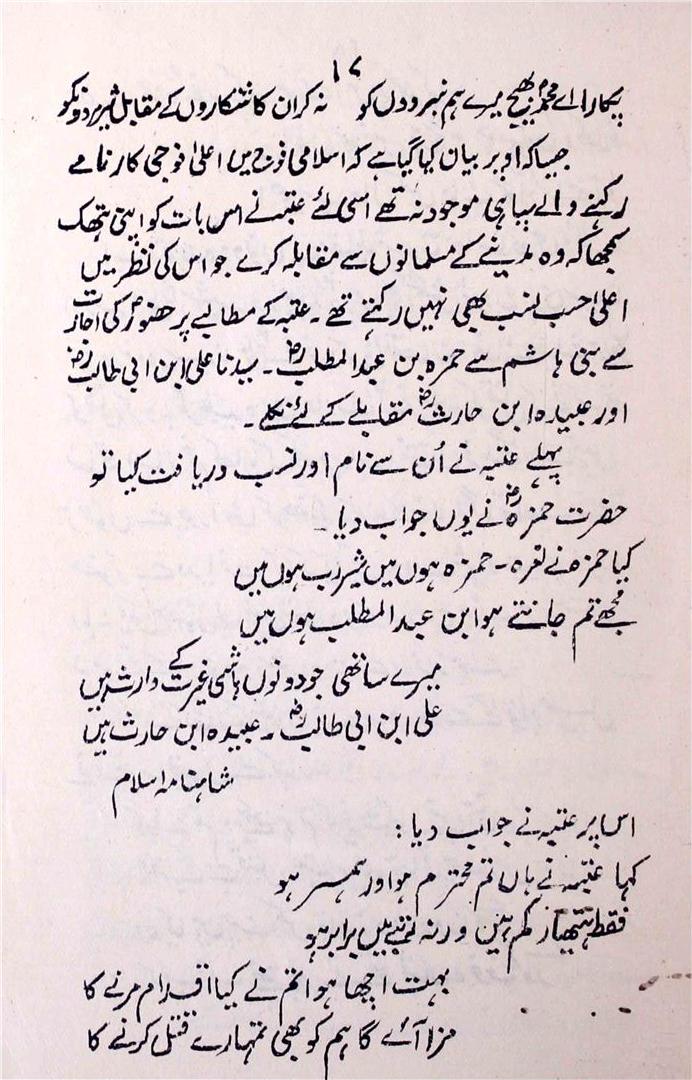 ۱۷
پکارا اے محمدؐ بھیج میرے ہم نبردوں کو نہ کر ان کاشتکاروں کے مقابل شیر مردوں کو
جیسا کہ اوپر بیان کیا گیا ہے کہ اسلامی فوج میں اعلیٰ فوجی کارنامے
رکھنے والے سپاہی موجود نہ تھے اسی لئے عتبہ نے اس بات کو اپنی ہتھک
سمجھا کہ وہ مدینے کے مسلمانوں سے مقابلہ کرے جو اس کی نظر میں
اعلیٰ حسب نسب بھی نہیں رکھتے تھے۔ عتبہ کے مطالبے پر حضورؐ کی اجازت
سے بنی ہاشم سے حمزہ بن عبدالمطلبؓ۔ سیدنا علی ابن ابی طالبؓ
اور عبیدہ ابن حارثؓ مقابلے کے لئے نکلے۔
پہلے عتبہ نے اُن سے نام اور نسب دریافت کیا تو
حضرت حمزہؓ نے یوں جواب دیا۔
کیا حمزہ نے نعرہ - حمزہ ہوں میں شیر رب ہوں میں
مجھے تم جانتے ہو ابن عبدالمطلب ہوں میں
میرے ساتھی جو دونوں ہاشمی غیرت کے وارث ہیں
علی ابن ابی طالبؓ۔ عبیدہ ابن حارث ہیں
شاہنامہ اسلام
اس پر عتبہ نے جواب دیا:
کہا عتبہ نے ہاں تم محترم ہو اور ہمسر ہو
فقط ہتھیار کم ہیں ورنہ رتبے میں برابر ہو
بہت اچھا ہوا تم نے کیا اقدام مرنے کا
مزا آئے گا ہم کو بھی تمہارے قتل کرنے کا